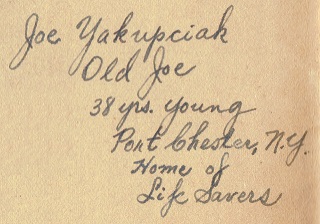 Joe Yakupciak
Old Joe
38 yrs. young
Port Chester, N.Y.
Home of
Life Savers